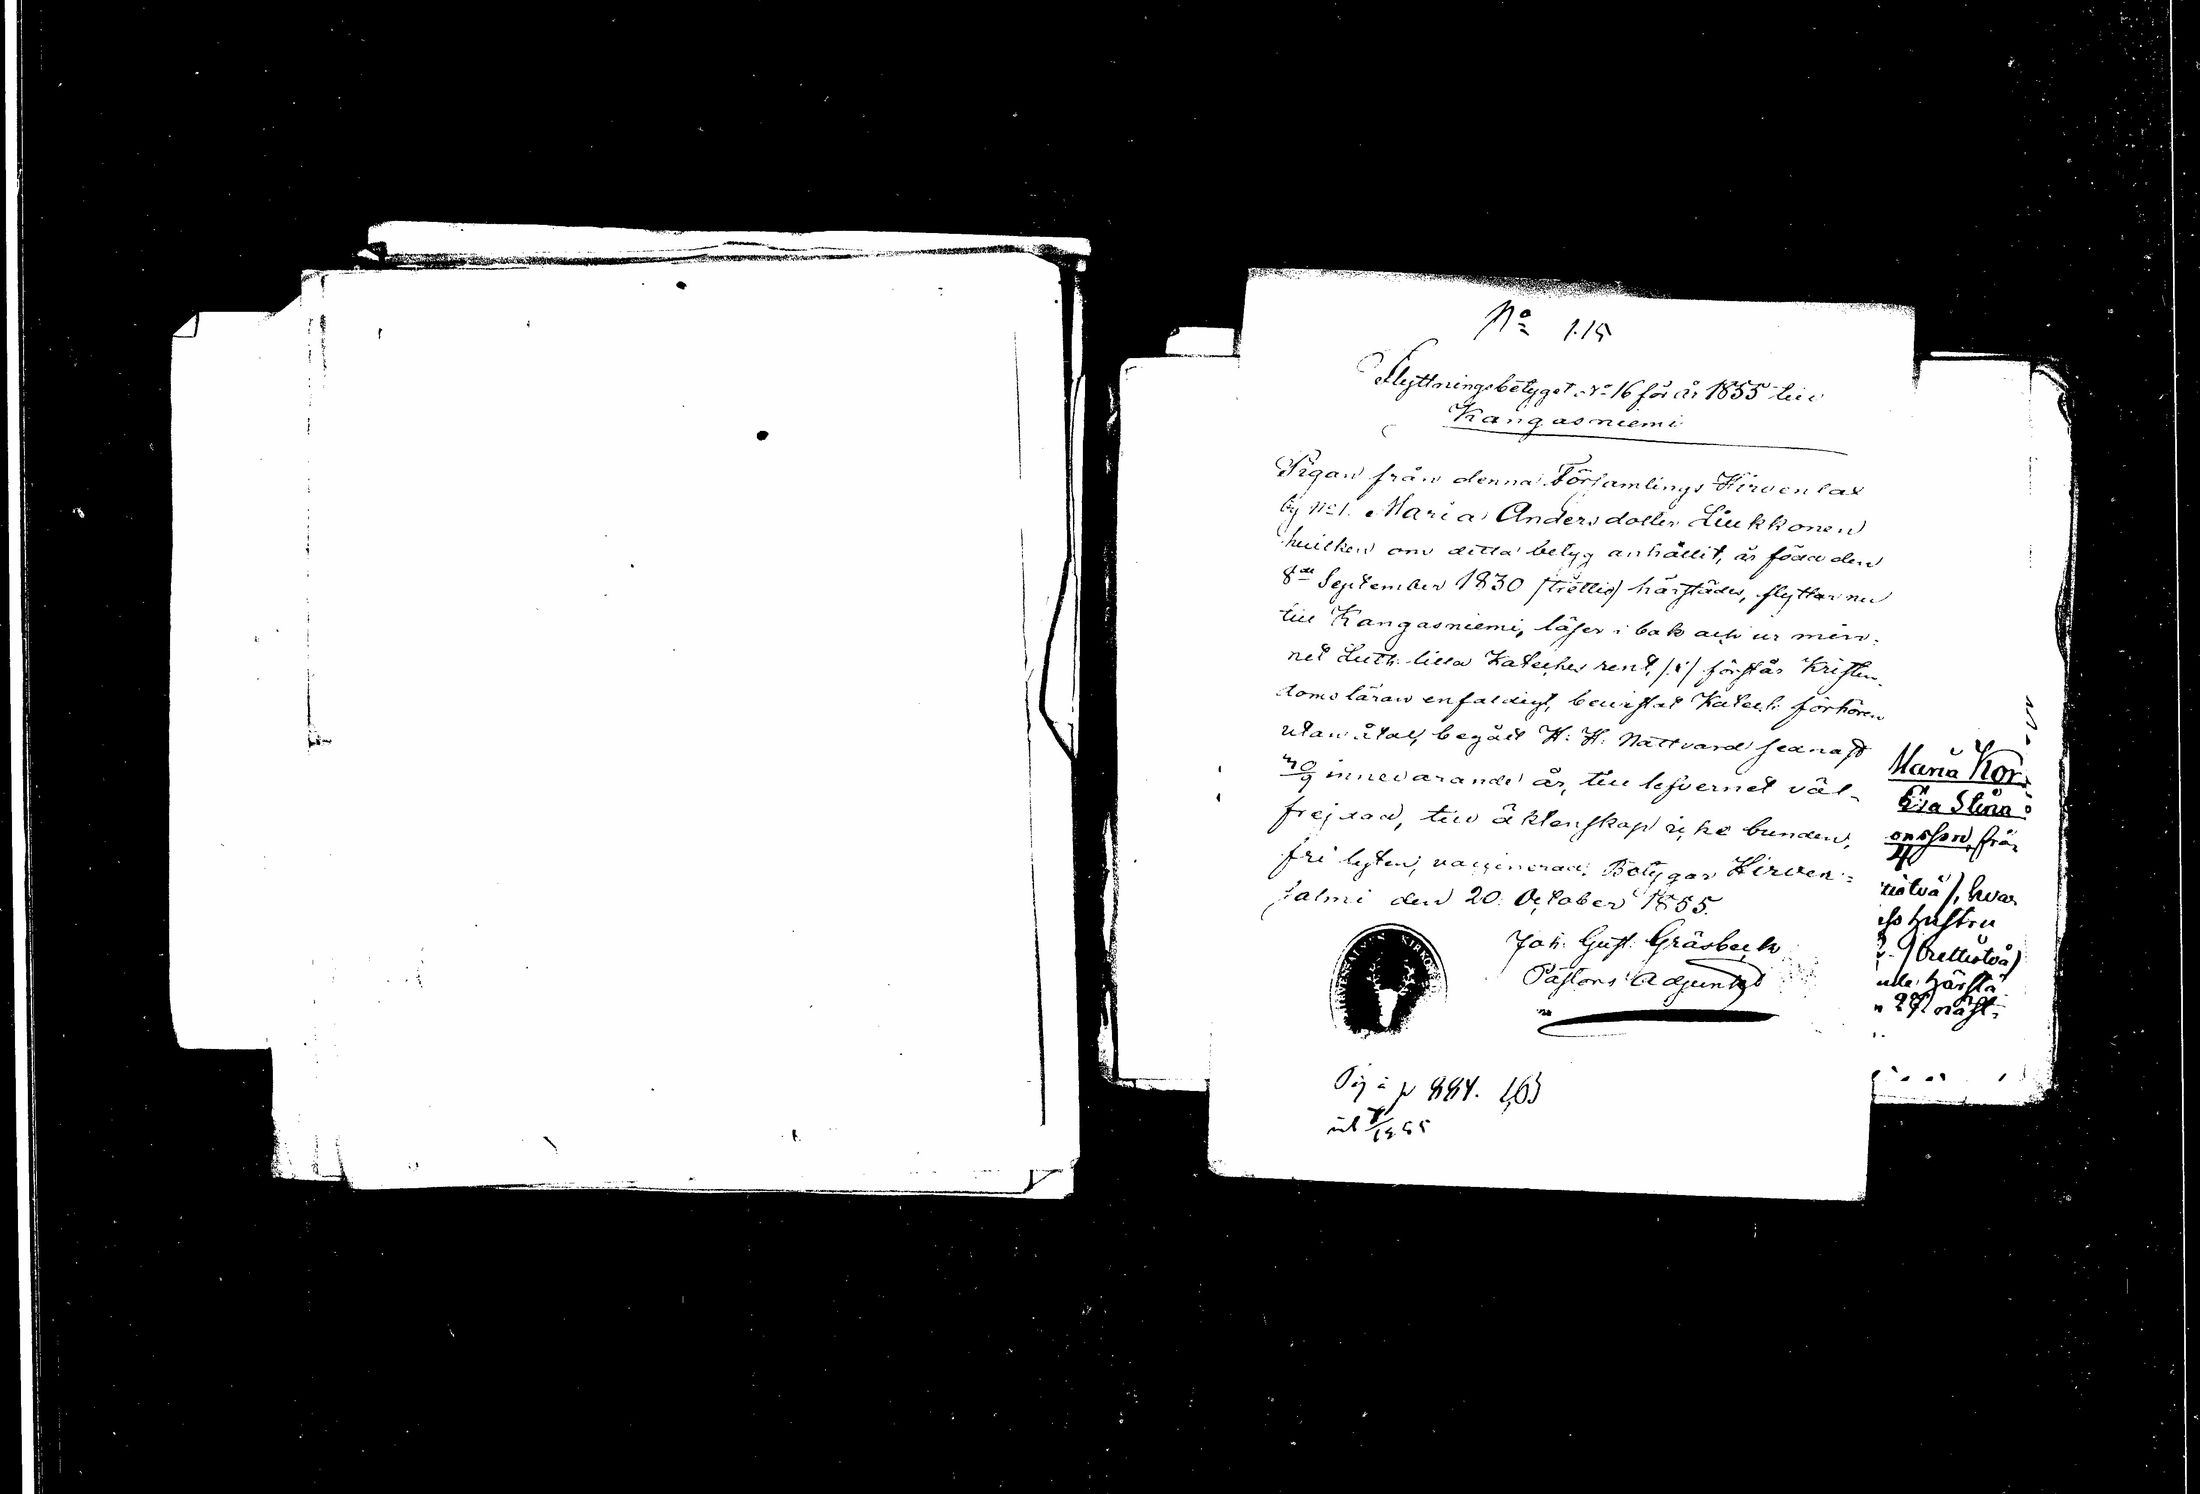 No 115
Flyttningsbetyget No 16 för år 1855 till
Kangasniemi
Pigan från denna Församlings Hirvenlax
by No 1. Maria Andersdotter Liukkonen
hvilken om detta betyg anhållit, är född den
8de September 1830 (trettio) härstädes, flyttar nu
till Kangasniemi, läser i bok och ur min-
net Luth. lilla Kateches rent, förstår Kristen-
doms läran enfaldigt, bevistat Katech. förhören
utan åtal, begått H: H: Nattvard sednast
30/9 innevarande år, till lefvernet väl-
frejdad, till äktenskap icke bunden,
fri lyten, vaccinerad. Betygar Hirven-
salmi den 20 October 1855.
Joh. Gust. Gräsbeck
Pastors Adjunkt
HIRVENSALMEN KIRKON
p 884. 163
1855
Maria Kor
Eva Stina
onsson, frå-
tiotvå), hvar
Hustru
(trettiotvå)
härstä
27 näst-